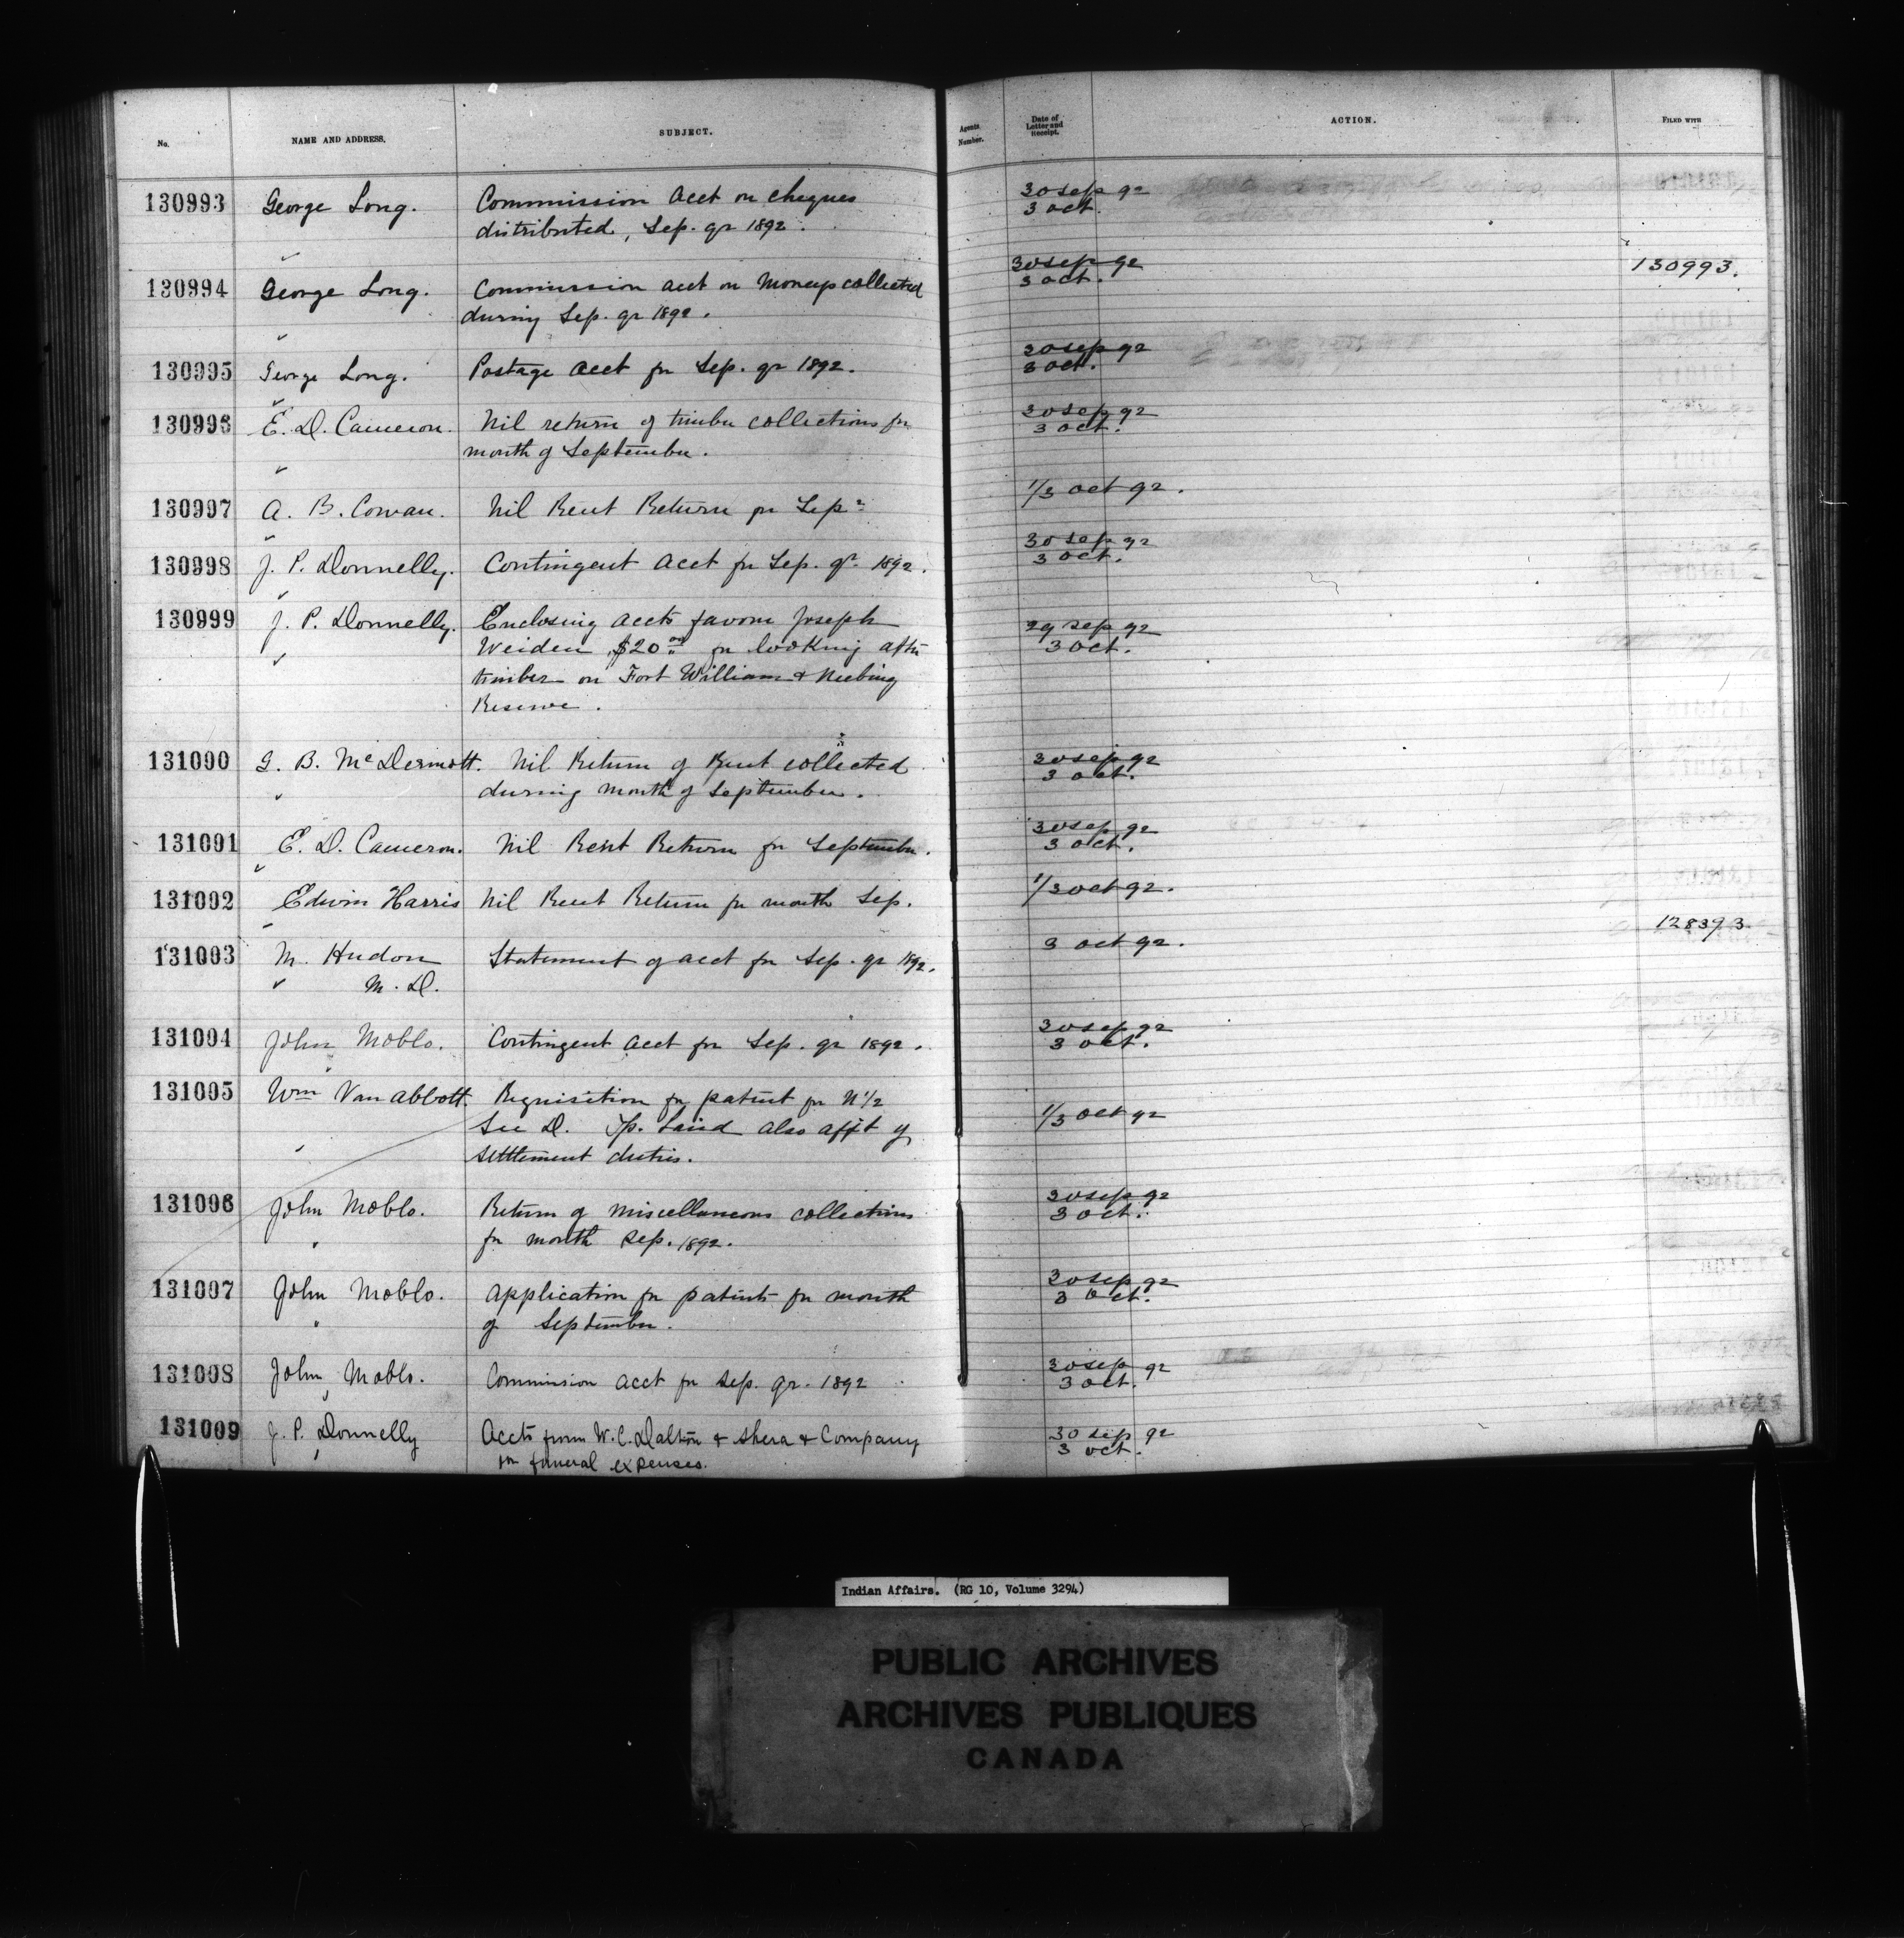 No.
NAME AND ADDRESS.
SUBJECT.
Agents Number.
Date of Letter and Receipt.
ACTION.
FILED WITH
130993 George Long. Commission acct on cheques 30 sep 92
distributed, Sep. qr 1892. 3 oct.
130994 George Long. Commission acct on moneys collected 30 sep 92 130993.
during Sep. qr 1892. 3 oct.
130995 George Long. Postage acct for Sep. qr 1892. 30 sep 92
3 oct.
130996 E. D. Cameron. Nil return of timber collections for 30 sep 92
month of September. 3 oct.
130997 A. B. Cowan. Nil Rent Return for Sepr 1/3 oct 92.
130998 J. P. Donnelly. Contingent acct for Sep. qr 1892. 30 sep 92
3 oct.
130999 J. P. Donnelly. Enclosing accts favour Joseph 29 sep 92
Weiden $20.00 for looking after 3 oct.
timber on Fort William & Neebing
Reserve.
131000 G. B. McDermott. Nil Return of Rent collected 30 sep 92
during month of September. 3 oct.
131001 E. D. Cameron. Nil Rent Return for September. 30 sep 92
3 oct.
131002 Edwin Harris Nil Rent Return for month Sep. 1/3 oct 92.
131003 M. Hudon Statement of acct for Sep. qr 1892. 3 oct 92. 128393
M. D.
131004 John Moblo. Contingent acct for Sep. qr 1892. 30 sep 92
3 oct.
131005 Wm Van Abbott. Requisition for patent for N 1/2 1/3 oct 92
Sec D. Tp. Laird also afft of
settlement duties.
131006 John Moblo. Return of miscellaneous collections 30 sep 92
for month Sep. 1892. 3 oct.
131007 John Moblo. Application for patents for month 30 sep 92
of September. 3 oct.
131008 John Moblo. Commission acct for Sep. qr. 1892 30 sep 92
3 oct.
131009 J. P. Donnelly Accts from W. C. Dalton & Shera & Company 30 sep 92
for funeral expenses. 3 oct.
Indian Affairs. (RG 10, Volume 3294)
PUBLIC ARCHIVES
ARCHIVES PUBLIQUES
CANADA